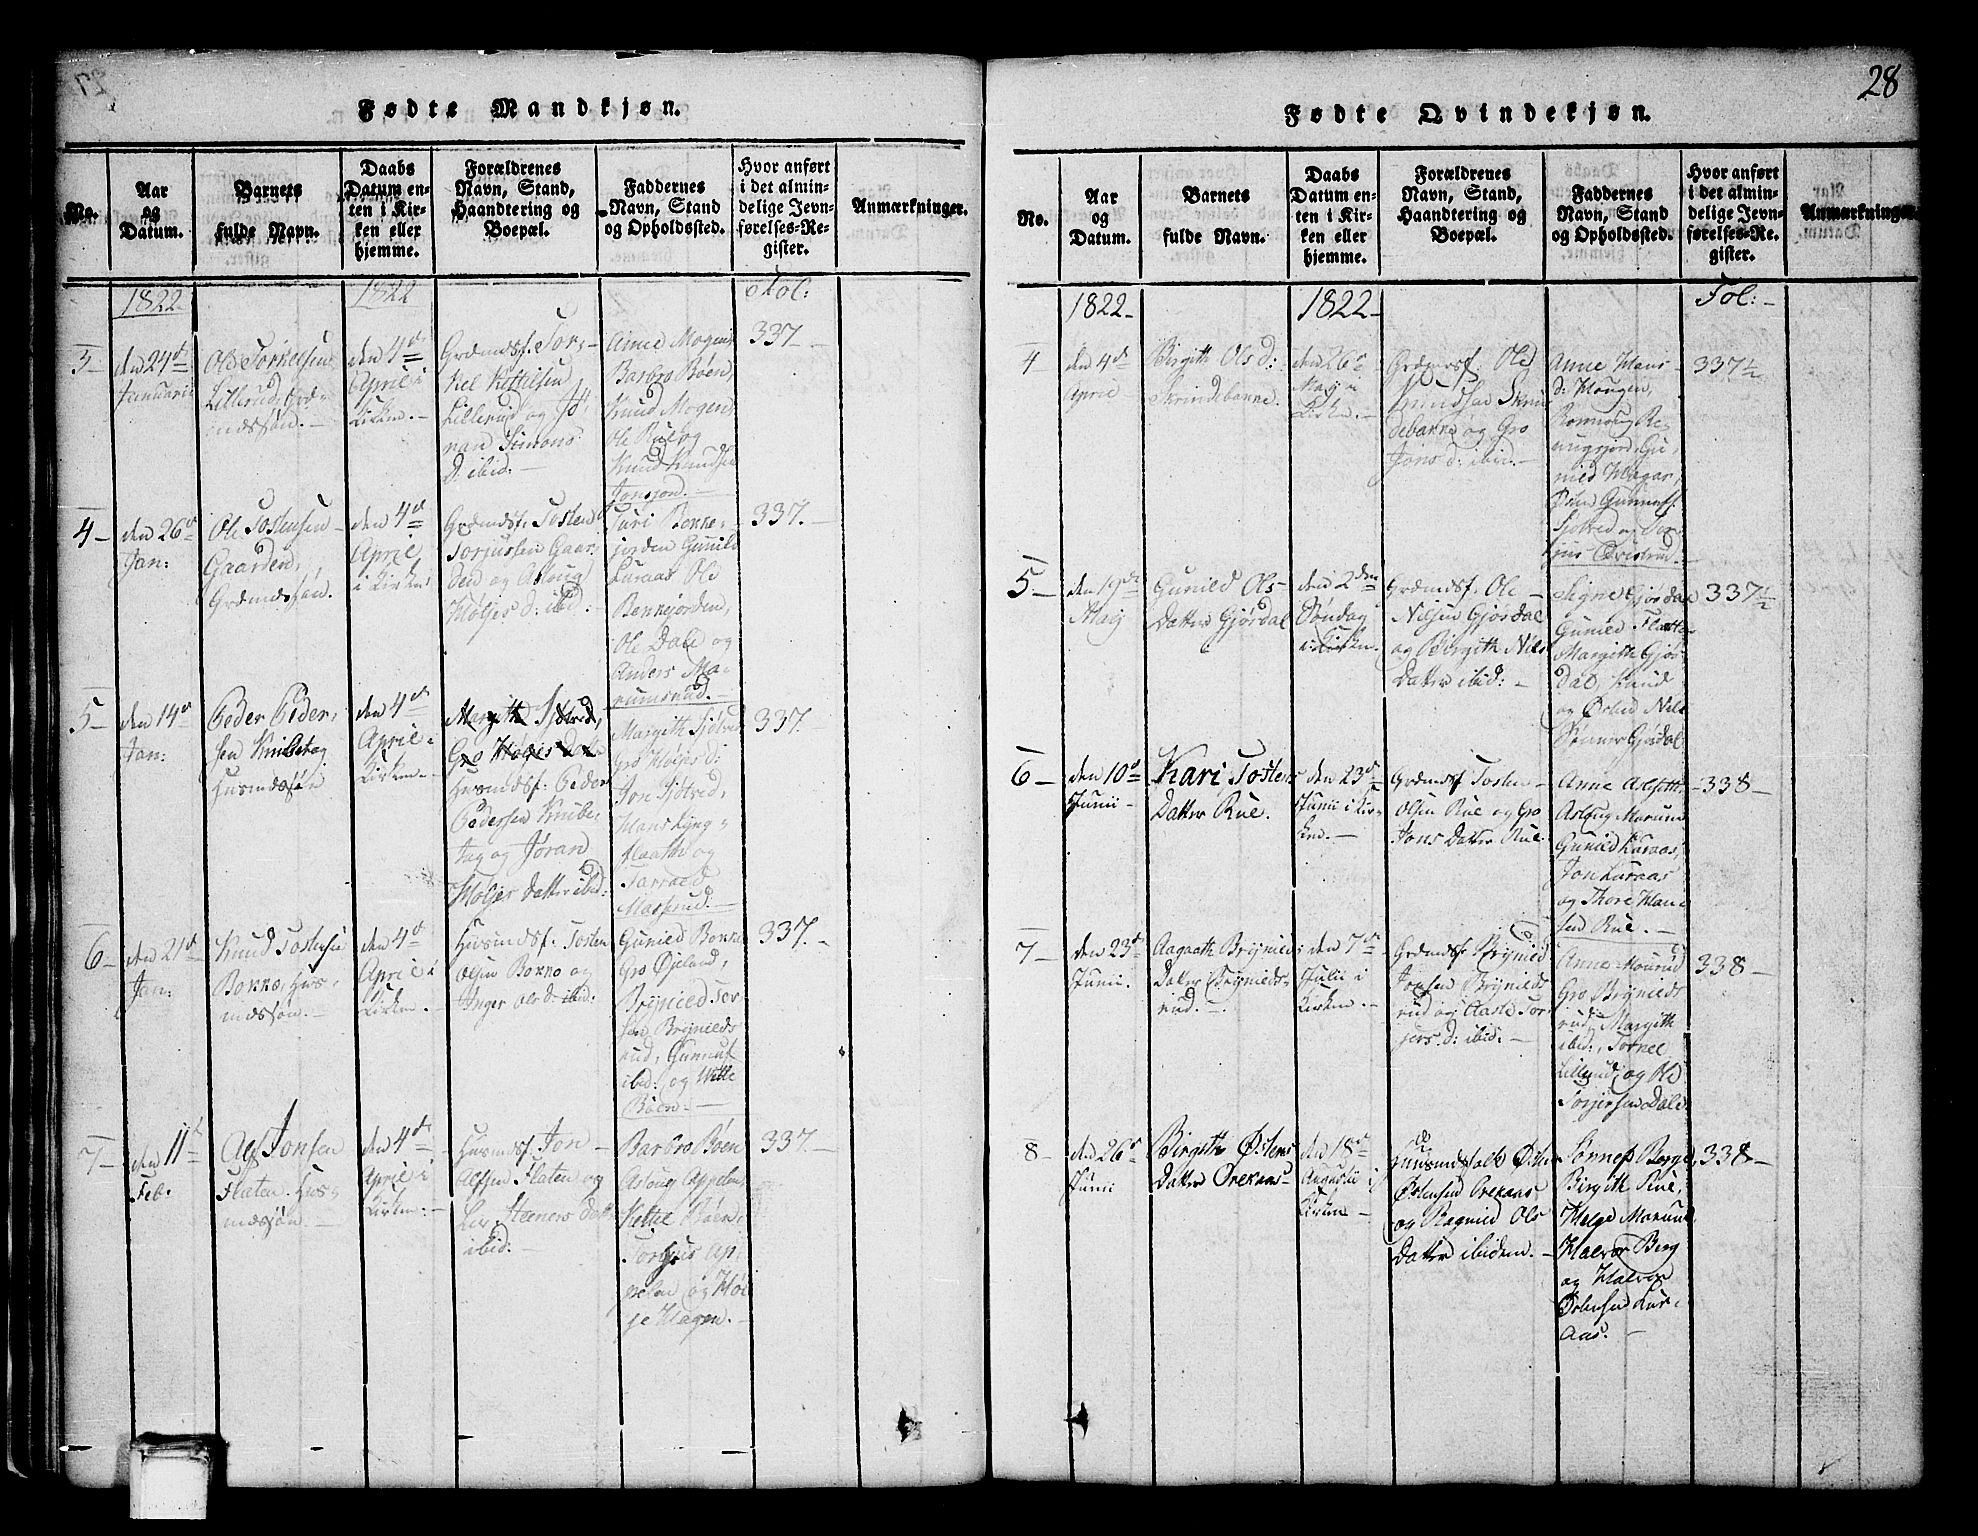 28
Fødte Mandkjøn.
No.
Aar
og
Datum.
Barnets
fulde Navn.
Daabs
Datum en-
ten i Kir-
ken eller
hjemme.
Forældrenes
Navn, Stand,
Haandtering og
Boepæl.
Faddernes
Navn, Stand
og Opholdssted.
Hvor anført
i det almin-
delige Jevn-
førelses-Re-
gister.
Anmærkninger.
1822
1822
Fol:
3
den 24d
Januarii
Ole Torkelsen
Lillerud, Grd-
mdssøn.
den 4d
April i
Kirken.
Grdmdsf. Tor-
kel Kettelsen
Lillerud og Jö-
ran Simons
D. ibid:
Anne Mogen
Barbro Böen,
Knud Mogen
Ole Rue og
Knud Knudsen
Jonsjord.
337
4
den 26d
Jan:
Ole Tostensen
Gaarden,
Grdmdssøn.
den 4d
April
i Kirken
Grdmdsf. Tosten
Torjussen Gaar-
den og Asloug
Høljes d: ibid.
Turi Benke-
jorden Gunild
Luraas Ole
Benkejorden,
Ole Dale og
Anders Ma-
rumsrud.
337.
5
den 14d
Jan:
Peder Peder-
sen Knibetag
Husmdssøn
den 4d
April i
Kirken.
Margith Sjøtrud,
Gro Høljes Datt
Husmdsf: Peder
Pedersen Knibe-
tag og Jøran
Høljes Datter ibid:
Margith Sjøtrud
Gro Høljes d:
Jon Sjøtrud,
Hans Lyng-
flaath og
Tarrald
Massrud.
337.
6
den 21d
Jan:
Knud Tostensen
Bokko, Hus-
mdssøn.
den 4d
April i
Kirken.
Husmdsf. Tosten
Olsen Bokko og
Inger Ols D: ibid:
Gunild Bokko
Gro Øjeland,
Brynild Tor-
sen Brynilds
rud, Gunnuf
ibid: og Wetle
Böen.
337.
7
den 11d
Feb.
Alf Jonsen
Flaten. Hus-
mdssøn.
den 4d
April i
Kirken.
Husmdsf. Jon
Alfsen Flaten og
Liv Steeners Datt
ibid:
Barbro Böen
Asloug Appelen
Kettil Böen,
Torjus Ap-
pelen og Høl-
je Hagen.
337.
Fødte Qvindekjøn.
No.
Aar
og
Datum.
Barnets
fulde Navn.
Daabs
Datum en-
ten i Kir-
ken eller
hjemme.
Forældrenes
Navn, Stand,
Haandtering og
Boepæl.
Faddernes
Navn, Stand
og Opholdssted.
Hvor anført
i det almin-
delige Jevn-
førelses-Re-
gister.
Anmærkninger
1822
1822
Fol:
4
den 4d
April
Birgith Ols d:
Skrindebakke.
den 26d
Maji
Kirken.
Grdmdsf. Ole
Knudsen Skrin
debakke og Gro
Jons d: ibid.
Anne Hans
d: Hougen,
Gunnuf
337½
5
den 19de
Maij
Gunild Ols
Datter Gjørdal
den 2den
Søndag
i Kirken.
Grdmdsf. Ole
Nilsen Gjørdal
og Birgith Nils
Datter ibid:
Signe Gjørdal
Gunild Flatte
Margith Gjør-
dal, Knud
og Østen Nils
Sönner Gjørdal
337½
6
den 10d
Junii
Kari Tostens
Datter Rue.
den 23d
Junii i Kir-
ken.
Grdmdsf Tosten
Olsen Rue og Gro
Jons Datter Rue.
Anne Alseth,
Aslaug Marum
Gunild Luraas,
Jon Luraas
og Thore Han
sen Rue.
338
7
den 23d
Junii.
Aagaath Brynilds
Datter Brynilds-
rud.
den 7d
Julii i
Kirken.
Grdmdsf. Brynild
Jonsen Brynilds
rud og Aasle Tor-
jers d: ibid.
Anne Mourud
Gro Brynilds
rud, Margith
ibid:, Torkel
Lillerud, og Ole
Torjersen Dale
338
8
den 26d
Junii
Birgith Østens
Datter Orekaas
den 18d
Augustii i
Kirken
Huusmdsfolk Østen
Østensen Orekaas
og Ragnild Ols
Datter ibidem.
Sønnef Berge,
Birgith Rue,
Helge Marum,
Halvor Berg
og Halvor
Østensen Lur-
aas.
338